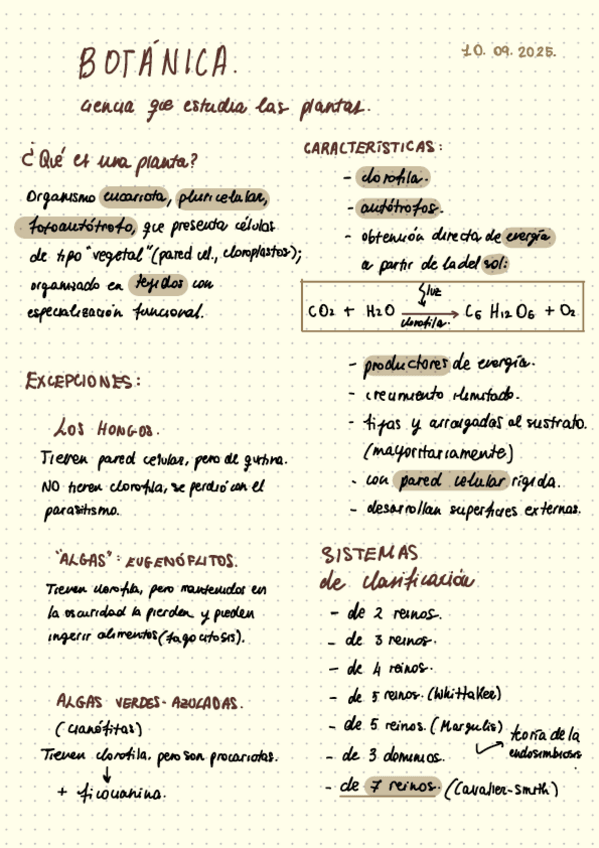 BOTÁNICA.
10. 09. 2025.
ciencia que estudia las plantas.
¿Qué es una planta?
Organismo eucariota, pluricelular,
fotoautótrofo, que presenta células
de tipo "vegetal" (pared cel., cloroplastos);
organizado en tejidos con
especialización funcional.
EXCEPCIONES:
LOS HONGOS.
Tienen pared celular, pero de quitina.
NO tienen clorofila, se perdió con el
parasitismo.
"ALGAS": EUGENÓFITOS.
Tienen clorofila, pero mantenidos en
la oscuridad la pierden y pueden
ingerir alimentos (fagocitosis).
ALGAS VERDES-AZULADAS.
(cianófitas)
Tienen clorofila, pero son procariotas.
↓
+ ficocianina.
CARACTERÍSTICAS:
- clorofila.
- autótrofos.
- obtención directa de energía
a partir de la del sol:
luz
CO2 + H2O → C6 H12 O6 + O2
clorofila.
- productores de energía.
- crecimiento ilimitado.
- fijas y arraigadas al sustrato.
(mayoritariamente)
- con pared celular rígida.
- desarrollan superficies externas.
SISTEMAS
de clasificación
- de 2 reinos.
- de 3 reinos.
- de 4 reinos.
- de 5 reinos. (Whittaker)
- de 5 reinos. (Margulis)
teoría de la
endosimbiosis
- de 3 dominios.
- de 7 reinos. (Cavalier-Smith)